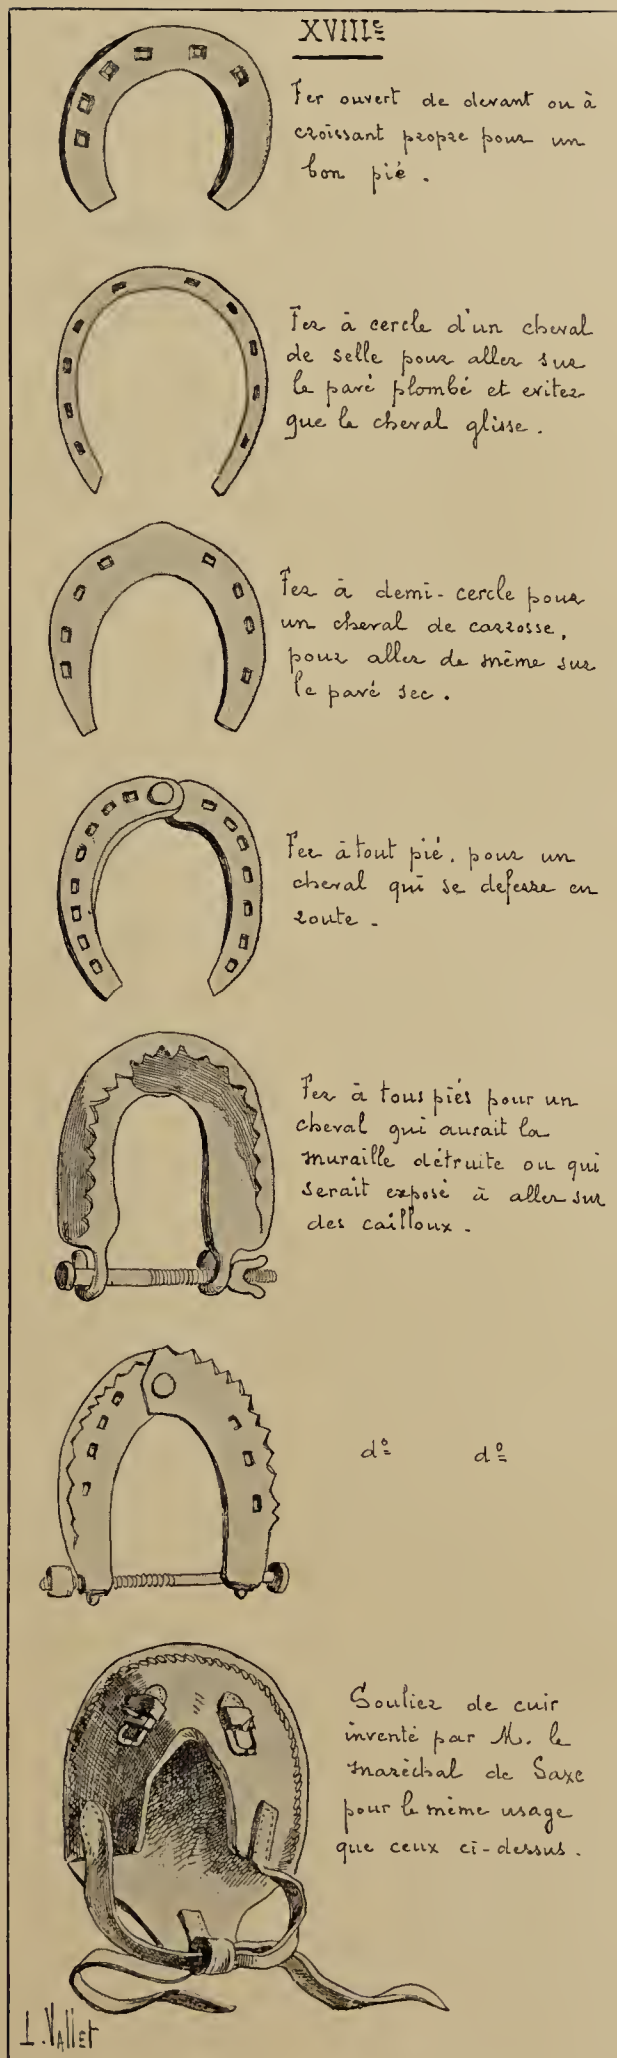 XVIIIe
Fer ouvert de devant ou à
croissant propre pour un
bon pié.
Fer à cercle d'un cheval
de selle pour aller sur
le pavé plombé et eviter
que le cheval glisse.
Fer à demi-cercle pour
un cheval de carrosse,
pour aller de même sur
le pavé sec.
Fer à tout pié. pour un
cheval qui se deferre en
route.
Fer à tous piés pour un
cheval qui aurait la
muraille détruite ou qui
serait exposé à aller sur
des cailloux.
do do
Soulier de cuir
inventé par M. le
maréchal de Saxe
pour le même usage
que ceux ci-dessus.
L. Vallet